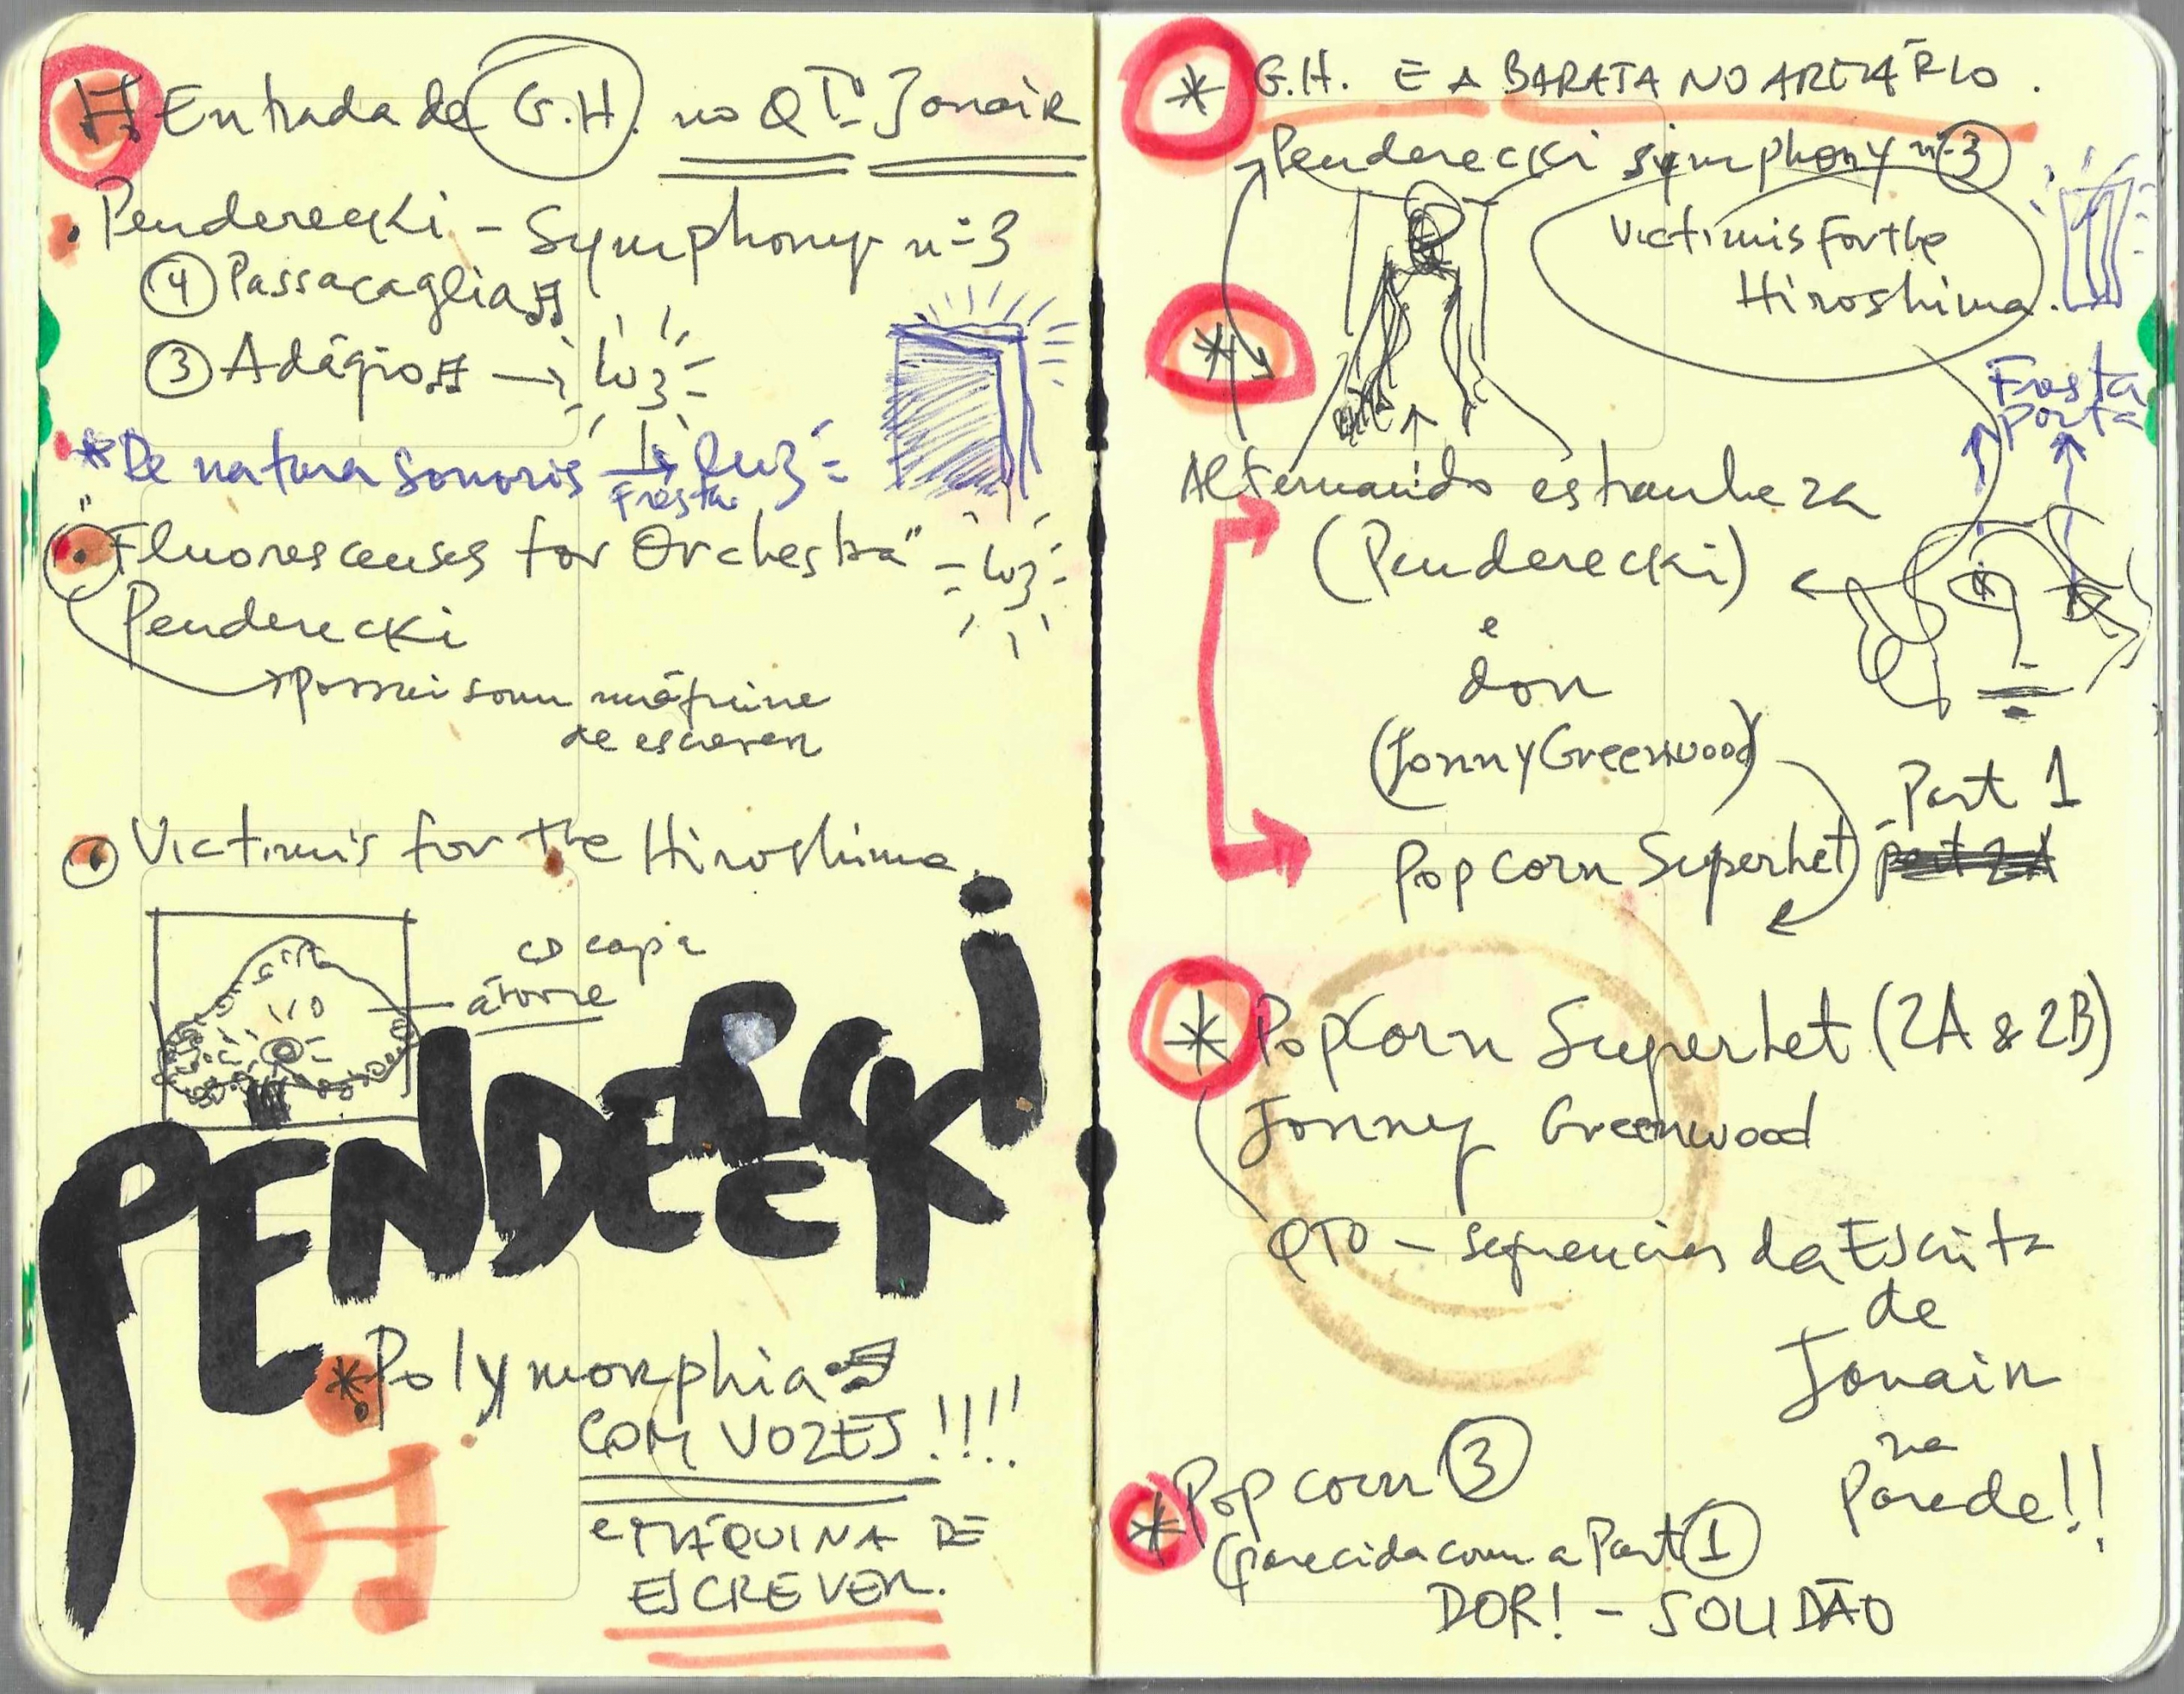 Entrada de G.H. no QTº Janair
Penderecki - Symphony nº3
④ Passacaglia
③ Adágio → luz
* De natura Sonoris → luz
Fresta
"Fluorescenses for Orchestra" luz
Penderecki
→ possui som máquina
de escrever
Victimis for the Hiroshima.
CD capa
árvore
PENDERECKI
* Polymorphia
COM VOZES!!!!
e MÁQUINA DE
ESCREVER.
* G.H. E A BARATA NO ARMÁRIO.
Penderecki symphony nº3
Victimis for the
Hiroshima.
*
Fresta
porta
Alternando estranheza
(Penderecki)
e
dor
(Jonny Greenwood)
Part 1
Popcorn Superhet part 2A
* PopCorn Superhet (2A & 2B)
Jonny Greenwood
QTO - sequencias da Escrita
de
Janair
na
Parede!!
* Popcorn ③
(parecida com a Part ①
DOR! - SOLIDÃO